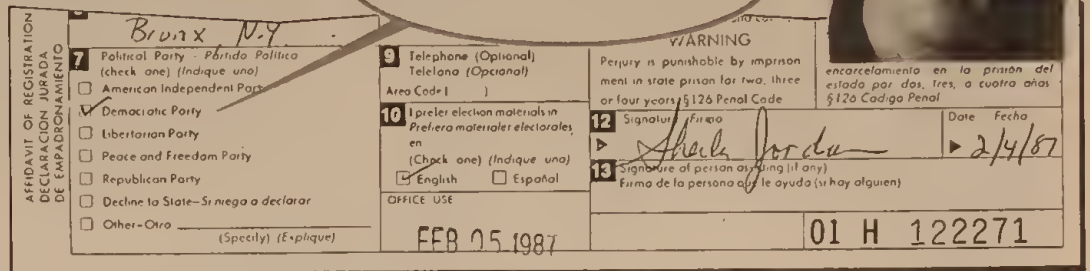 AFFIDAVIT OF REGISTRATION
DECLARACION JURADA
DE EMPADRONAMIENTO
Bronx, N.Y.
7 Political Party - Partido Político
(check one) (Indique uno)
American Independent Party
Democratic Party
Libertarian Party
Peace and Freedom Party
Republican Party
Decline to State-Se niega a declarar
Other-Otro
(Specify) (Explique)
9 Telephone (Optional)
Telefono (Opcional)
Area Code ( )
10 I prefer election materials in
Prefiero materiales electorales
en
(Check one) (Indique uno)
English Español
OFFICE USE
FEB 05 1987
WARNING
Perjury is punishable by imprison
ment in state prison for two, three
or four years §126 Penal Code
encarcelamiento en la prisión del
estado por dos, tres, o cuatro años
§126 Codigo Penal
12 Signature Firma
Sheila Jordan
Date Fecha
2/4/87
13 Signature of person assisting (if any)
Firma de la persona que le ayuda (si hay alguien)
01 H 122271